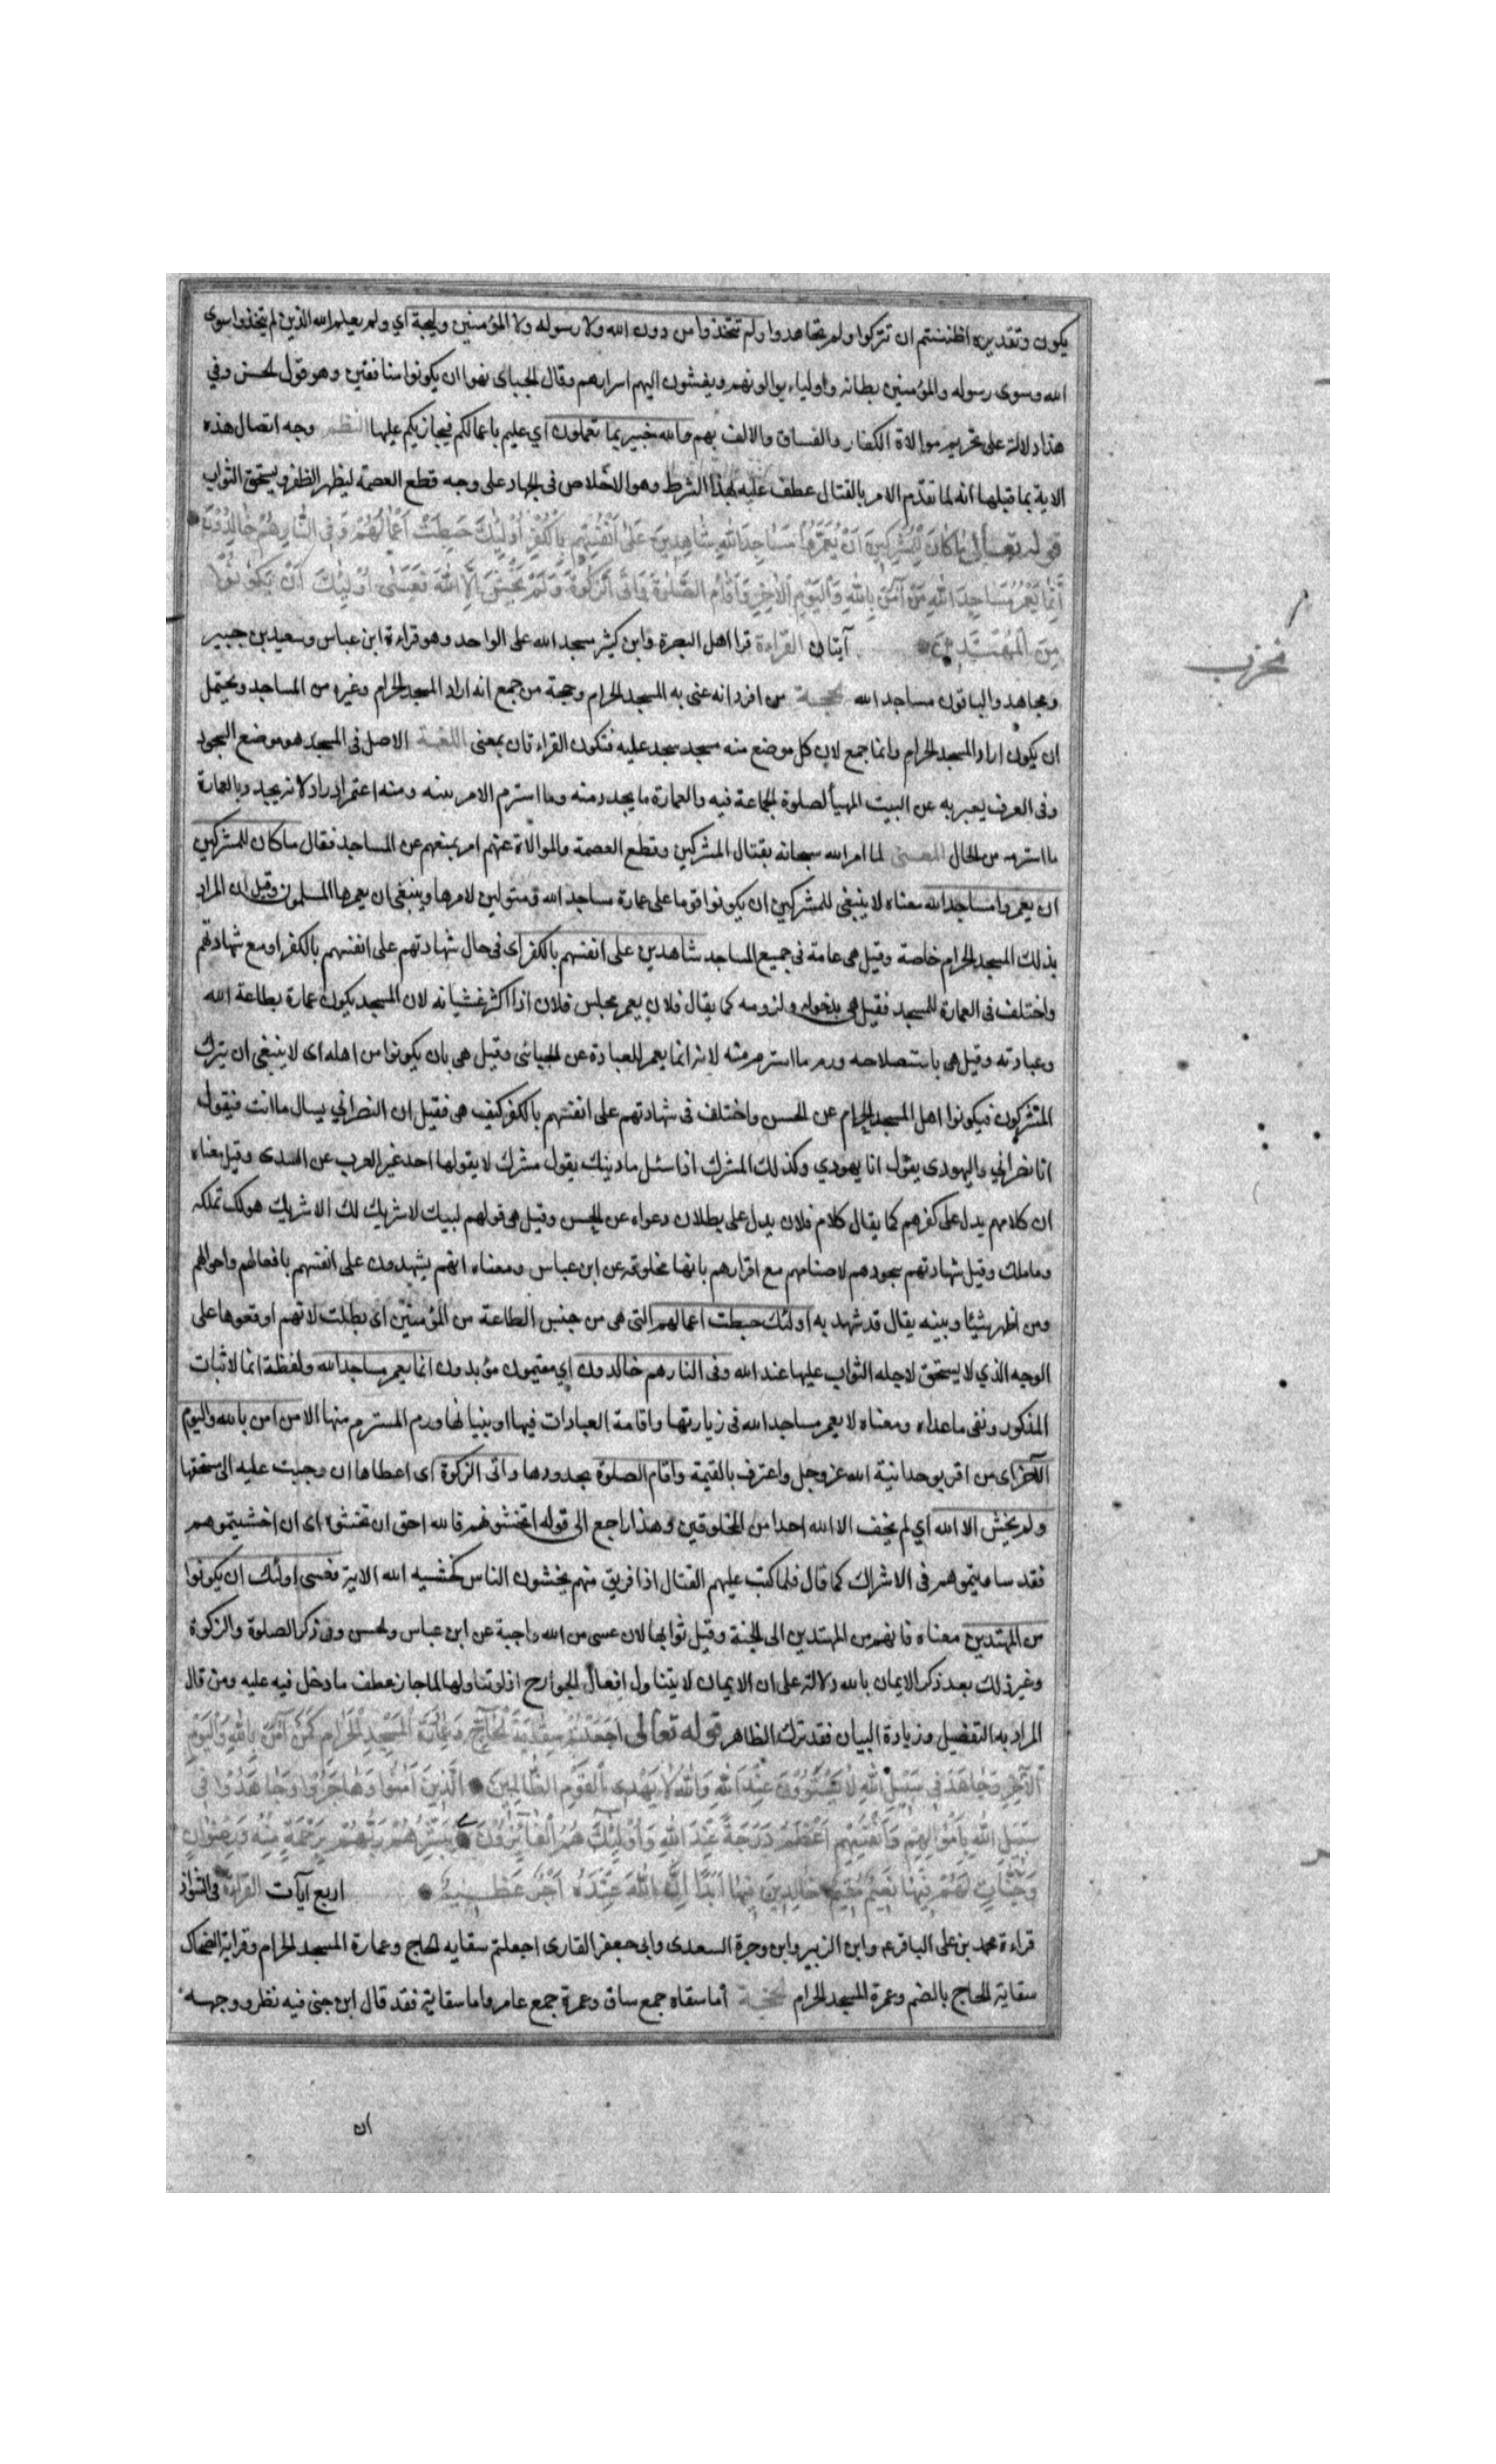 يكون وتقديره اظننتم ان تتركوا ولم تجاهدوا ولم تتخذوا من دون الله ولا رسوله ولا المؤمنين وليجة اي ولم يعلم الله الذين لم يتخذوا سوى
الله وسوى رسوله والمؤمنين بطانة واولياء يوالونهم ويفشون اليهم اسرارهم وقال الجبائى نهوا ان يكونوا منافقين وهو قول الحسن وفي
هذا دلالة على تحريم موالاة الكفار والفساق والالف بهم والله خبير بما تعملون اي عليم باعمالكم فيجازيكم عليها النظم وجه اتصال هذه
الاية بما قبلها انه لما تقدم الامر بالقتال عطف عليه بهذا الشرط وهو الاخلاص فى الجهاد على وجه قطع العصمة ليظهر الظفر ويستحق الثواب
قوله تعالى مَا كَانَ لِلْمُشْرِكِينَ اَنْ يَعْمُرُوا مَسَاجِدَ اللهِ شَاهِدِينَ عَلَى اَنْفُسِهِمْ بِالْكُفْرِ اُولٰئِكَ حَبِطَتْ اَعْمَالُهُمْ وَفِى النَّارِ هُمْ خَالِدُونَ
اِنَّمَا يَعْمُرُ مَسَاجِدَ اللهِ مَنْ آمَنَ بِاللهِ وَالْيَوْمِ الْاٰخِرِ وَاَقَامَ الصَّلٰوةَ وَاٰتَى الزَّكٰوةَ وَلَمْ يَخْشَ اِلَّا اللهَ فَعَسَى اُولٰئِكَ اَنْ يَكُونُوا
مِنَ الْمُهْتَدِينَ آيتان القراءة قرا اهل البصرة وابن كثير مسجد الله على الواحد وهو قراءة ابن عباس وسعيد بن جبير
ومجاهد والباقون مساجد الله الحجة من افرد انه عنى به المسجد الحرام وحجة من جمع انه اراد المسجد الحرام وغيره من المساجد ويحتمل
ان يكون اراد المسجد الحرام وانما جمع لان كل موضع منه مسجد يسجد عليه فتكون القراءتان بمعنى اللغة الاصل فى المسجد هو موضع السجود
وفى العرف يعبر به عن البيت المهيأ لصلوة الجماعة فيه والعمارة ما يجدد منه وما استرم الامر منه ومنه اعتمر اذا زار لانه يجدد بالعمارة
ما استرم من الحال المعنى لما امر الله سبحانه بقتال المشركين وقطع العصمة والموالاة عنهم امر بمنعهم عن المساجد فقال ما كان للمشركين
ان يعمروا مساجد الله معناه لا ينبغى للمشركين ان يكونوا قوما على عمارة مساجد الله ومتولين لامرها وينبغى ان يعمرها المسلمون وقيل ان المراد
بذلك المسجد الحرام خاصة وقيل هى عامة فى جميع المساجد شاهدين على انفسهم بالكفر اى فى حال شهادتهم على انفسهم بالكفر او مع شهادتهم
واختلف فى العمارة للمسجد فقيل هى بدخوله ولزومه كما يقال فلان يعمر مجلس فلان اذا اكثر غشيانه لان المسجد يكون عمارة بطاعة الله
وعبادته وقيل هى باستصلاحه ورم ما استرم منه لانه انما يعمر للعبادة عن الجبائى وقيل هى بان يكونوا من اهله اى لا ينبغى ان يترك
المشركون فيكونوا اهل المسجد الحرام عن الحسن واختلف فى شهادتهم على انفسهم بالكفر كيف هى فقيل ان النصراني يسال ما انت فيقول
انا نصراني واليهودى يقول انا يهودي وكذلك المشرك اذا سئل ما دينك يقول مشرك لا يقولها احد غير العرب عن السدى وقيل معناه
ان كلامهم يدل على كفرهم كما يقال كلام فلان يدل على بطلان دعواه عن الحسن وقيل هى قولهم لبيك لا شريك لك الا شريك هو لك تملكه
وما ملك وقيل شهادتهم سجودهم لاصنامهم مع اقرارهم بانها مخلوقة عن ابن عباس ومعناه انهم يشهدون على انفسهم بافعالهم واحوالهم
ومن اظهر شيئا وبينه يقال قد شهد به اولئك حبطت اعمالهم التى هى من جنس الطاعة من المؤمنين اى بطلت لانهم اوقعوها على
الوجه الذي لا يستحق لاجله الثواب عليها عند الله وفى النار هم خالدون اي مقيمون مؤبدون انما يعمر مساجد الله ولفظة انما لاثبات
المذكور ونفى ما عداه ومعناه لا يعمر مساجد الله فى زيارتها واقامة العبادات فيها او بنيانها ورم المسترم منها الا من امن بالله واليوم
الآخر اى من اقر بوحدانية الله عز وجل واعترف بالقيمة واقام الصلوة بحدودها واتى الزكوة اى اعطاها ان وجبت عليه الى مستحقها
ولم يخش الا الله اي لم يخف الا الله احدا من المخلوقين وهذا راجع الى قوله اتخشونهم فالله احق ان تخشوه اى ان اخشيتموهم
فقد ساويتموهم فى الاشراك كما قال فلما كتب عليهم القتال اذا فريق منهم يخشون الناس كخشيه الله الاية فعسى اولئك ان يكونوا
من المهتدين معناه فانهم من المهتدين الى الجنة وقيل ثوابها لان عسى من الله واجبة عن ابن عباس والحسن وفى ذكر الصلوة والزكوة
وغير ذلك بعد ذكر الايمان بالله دلالة على ان الايمان لا يتناول افعال الجوارح اذ لو تناولها لما جاز عطف ما دخل فيه عليه ومن قال
المراد به التفصيل وزيادة البيان فقد ترك الظاهر قوله تعالى اَجَعَلْتُمْ سِقَايَةَ الْحَاجِّ وَعِمَارَةَ الْمَسْجِدِ الْحَرَامِ كَمَنْ آمَنَ بِاللهِ وَالْيَوْمِ
الْآخِرِ وَجَاهَدَ فِى سَبِيلِ اللهِ لَا يَسْتَوُونَ عِنْدَ اللهِ وَاللهُ لَا يَهْدِى الْقَوْمَ الظَّالِمِينَ الَّذِينَ آمَنُوا وَهَاجَرُوا وَجَاهَدُوا فِى
سَبِيلِ اللهِ بِاَمْوَالِهِمْ وَاَنْفُسِهِمْ اَعْظَمُ دَرَجَةً عِنْدَ اللهِ وَاُولٰئِكَ هُمُ الْفَائِزُونَ يُبَشِّرُهُمْ رَبُّهُمْ بِرَحْمَةٍ مِنْهُ وَرِضْوَانٍ
وَجَنَّاتٍ لَهُمْ فِيهَا نَعِيمٌ مُقِيمٌ خَالِدِينَ فِيهَا اَبَدًا اِنَّ اللهَ عِنْدَهُ اَجْرٌ عَظِيمٌ اربع آيات القراءة فى الشواذ
قراءة محمد بن على الباقر ع وابن الزبير وابن وجرة السعدى وابى جعفر القارى اجعلتم سقايه الحاج وعمارة المسجد الحرام وقراية الضحاك
سقاية الحاج بالضم وعمرة المسجد الحرام الحجة أما سقاه جمع ساق وعمرة جمع عامر واما سقاية فقد قال ابن جنى فيه نظر ووجهه
ان